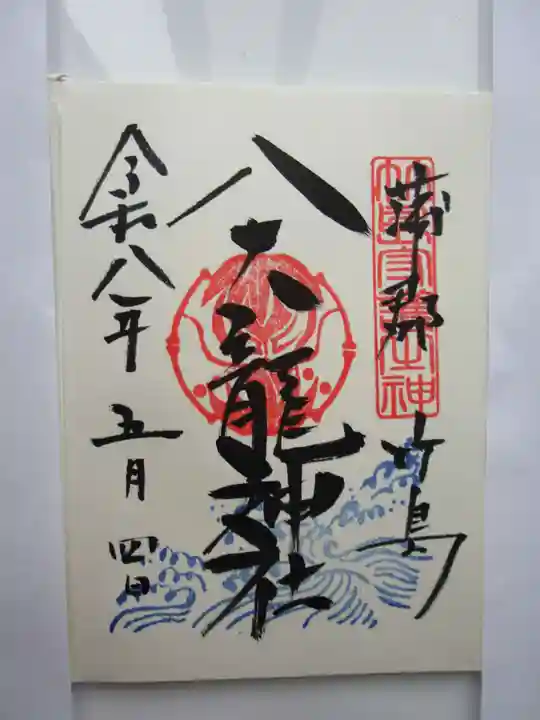 蒲郡 竹島
八大龍神社
令和八年 五月 四日